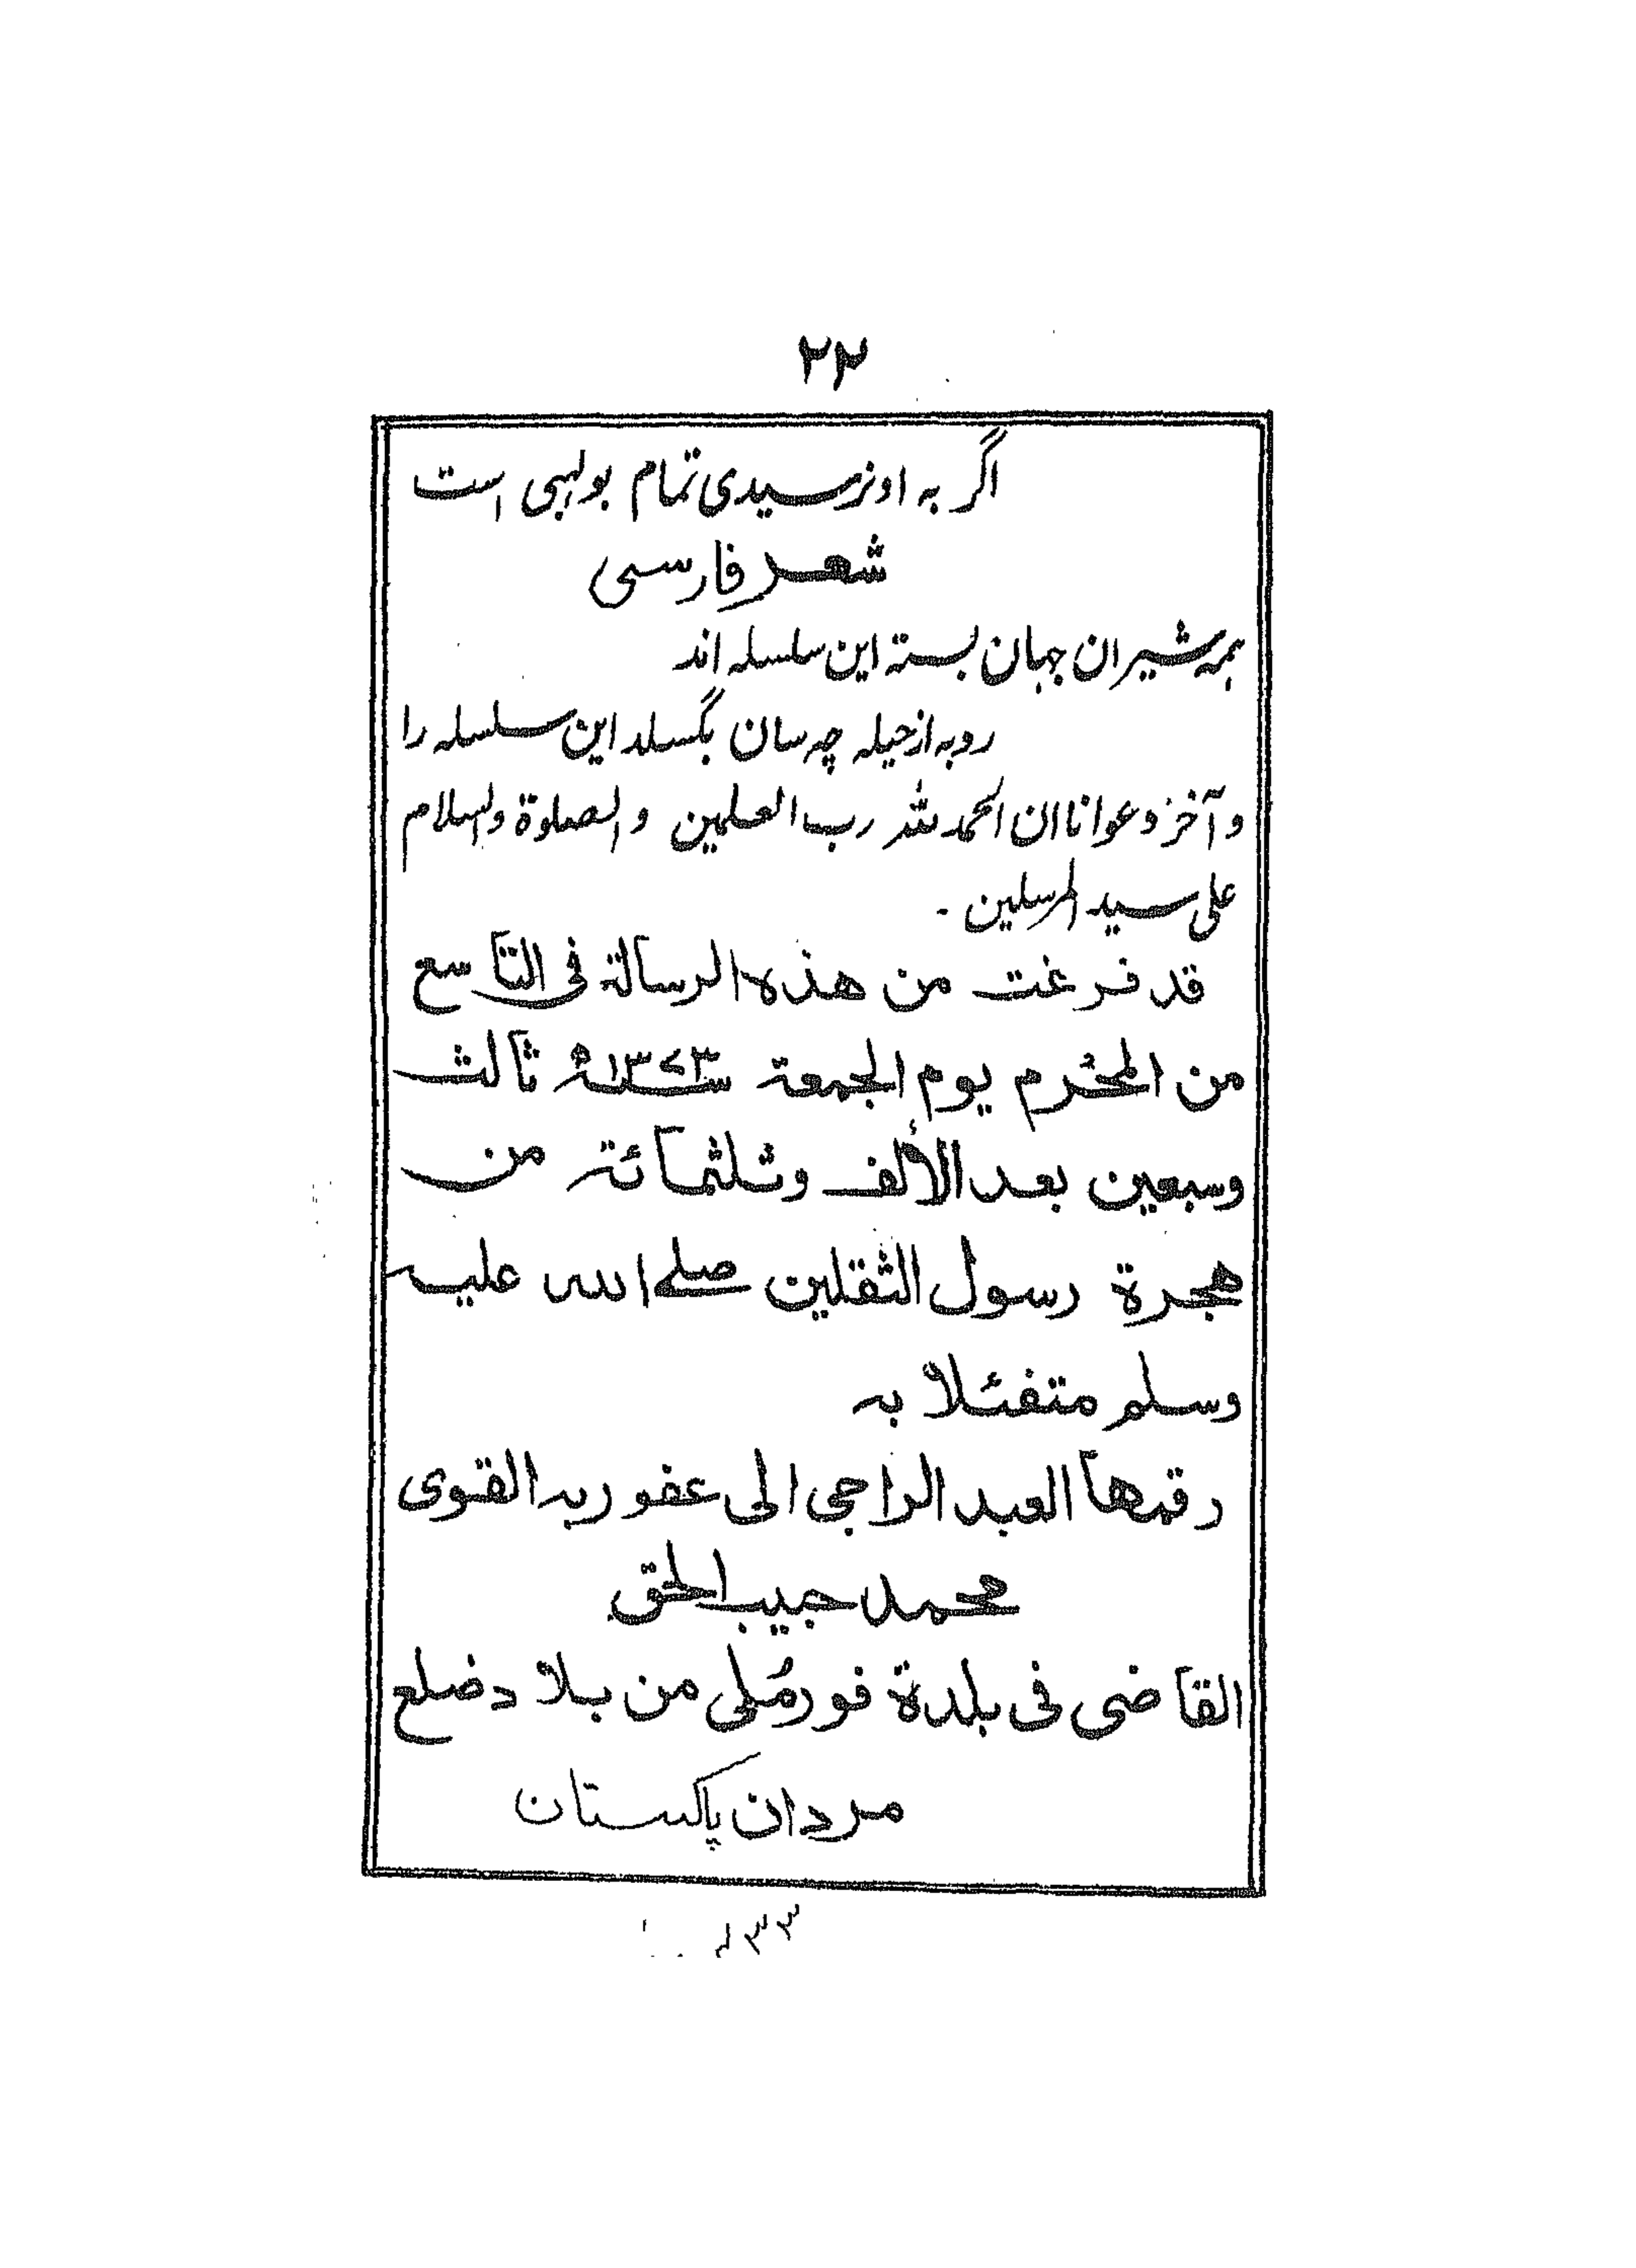 ٢٢
اگر به او نرسیدی تمام بولہبی است
شعر فارسی
ہمہ شیران جہان بستہ این سلسلہ اند
روبہ از حیلہ چہ سان بگسلد این سلسلہ را
و آخر دعوانا ان الحمد للہ رب العلمین والصلوة والسلام
علی سید المرسلین -
قد فرغت من هذه الرسالة فی التاسع
من المحرم یوم الجمعة سنة ١٣٧٣ھ ثالث
وسبعین بعد الألف وثلثمائة من
هجرة رسول الثقلین صلے اللہ علیہ
وسلم متفئلا به
رقمها العبد الراجی الی عفو ربہ القوی
محمد حبیب الحق
القاضی فی بلدة فورمُلی من بلاد ضلع
مردان پاکستان